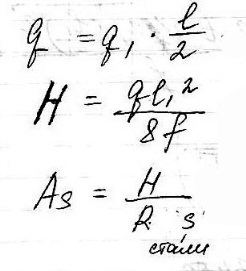 q = q₁ · l/2
H = ql₁²/8f
As = H/R s
стали